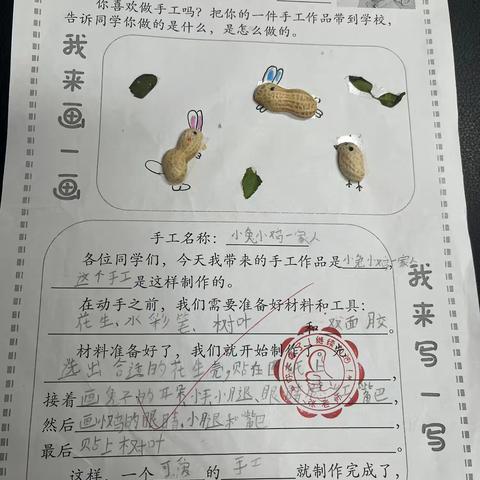 你喜欢做手工吗？把你的一件手工作品带到学校，
告诉同学你做的是什么，是怎么做的。
我来画一画
手工名称：小兔小鸡一家人
各位同学们，今天我带来的手工作品是小兔小鸡一家人，
这个手工是这样制作的。
在动手之前，我们需要准备好材料和工具：
花生、水彩笔、树叶和双面胶。
材料准备好了，我们就开始制作了。
选出合适的花生壳，贴在图纸上，
接着画兔子的耳朵、小手、小腿、眼 嘴巴
然后画小鸡的眼睛、小腿和嘴巴
最后贴上树叶
这样，一个可爱的手工就制作完成了，
我来写一写